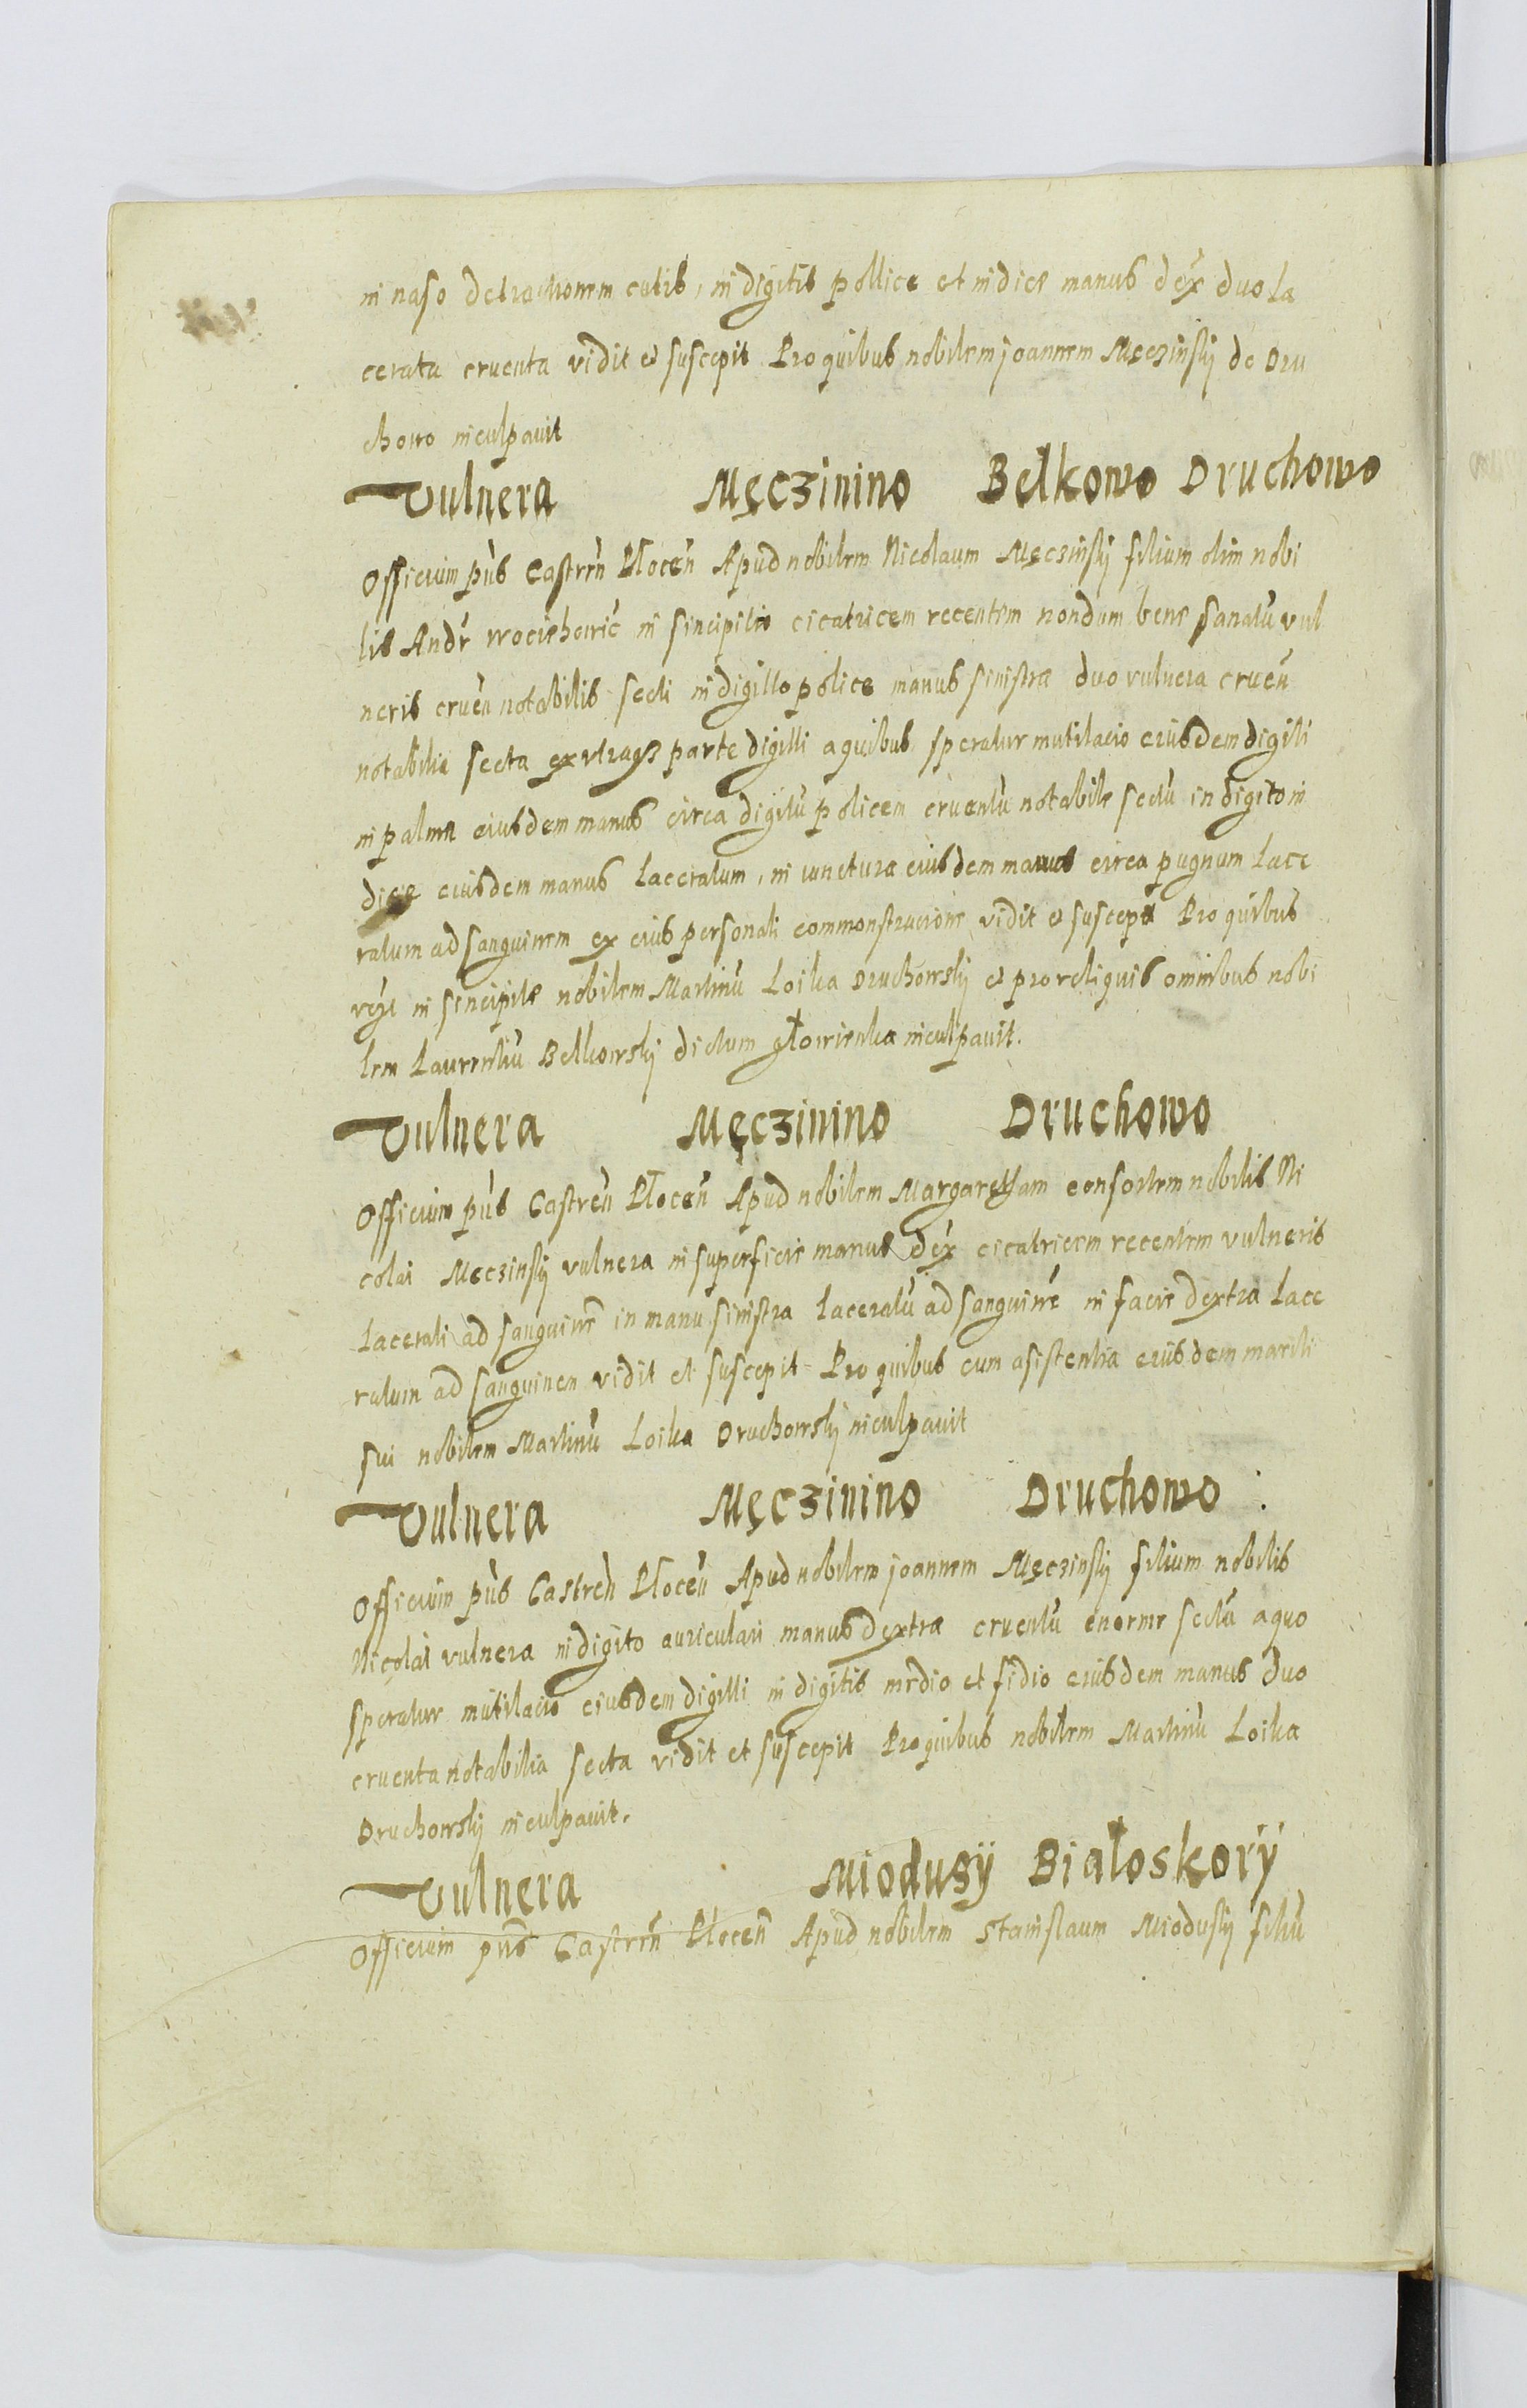 in naso detractionem cutis, in digitis pollice et indice manus dex duo la
cerata cruenta vidit et suscepit Pro quibus nobilem joannem Męczinsky de Dru
chowo inculpavit
Vulnera Męczinino Bełkowo Druchowo
Officium pñs Castreñ Płoceñ Apud nobilem Nicolaum Męczinsky filium olim nobi
lis Andr in sincipitio cicatricem recentem nondum bene sanatũ vul
neris crueñ notabilis secti in digitto police manus sinistrae duo vulnera crueñ
notabilia secta ex utraqz parte digitti a quibus speratur mutilacio eiusdem digiti
in palma eiusdem manus circa digitũ policem cruentũ notabile sectũ in digito in
dice eiusdem manus laceratum, in iunctura eiusdem manus circa pugnum lace
ratum ad sanguinem ex eius personali commonstracione vidit et suscepit Pro quibus
in sincipite nobilem Martinũ Loika Druchowsky et pro reliquis omnibus nobi
lem Laurentiũ Belkowsky dictum głowienka inculpavit.
Vulnera Męczinino Druchowo
Officium pñs Castreñ Płoceñ Apud nobilem Margaretham consortem nobilis Ni
colai Męczinsky vulnera in superficie manus dex cicatricem recentem vulneris
lacerati ad sanguinẽ in manu sinistra laceratũ ad sanguinẽ in facie dextra lace
ratum ad sanguinem vidit et suscepit Pro quibus cum asistentia eiusdem mariti
sui nobilem Martinũ Loika Druchowsky inculpavit
Vulnera Męczinino Druchowo
Officium pñs Castreñ Płoceñ Apud nobilem joannem Męczinsky filium nobilis
Nicolai vulnera in digito auriculari manus dextrae cruentũ enorme sectũ a quo
speratur mutilacio eiusdem digitti in digitis medio et fidio eiusdem manus duo
cruenta notabilia secta vidit et suscepit Pro quibus nobilem Martinũ Loika
Druchowsky inculpavit.
Vulnera Miodusÿ Białoskorÿ
Officium pñs Castreñ Płoceñ Apud nobilem Stanislaum Miodusÿ filiũ